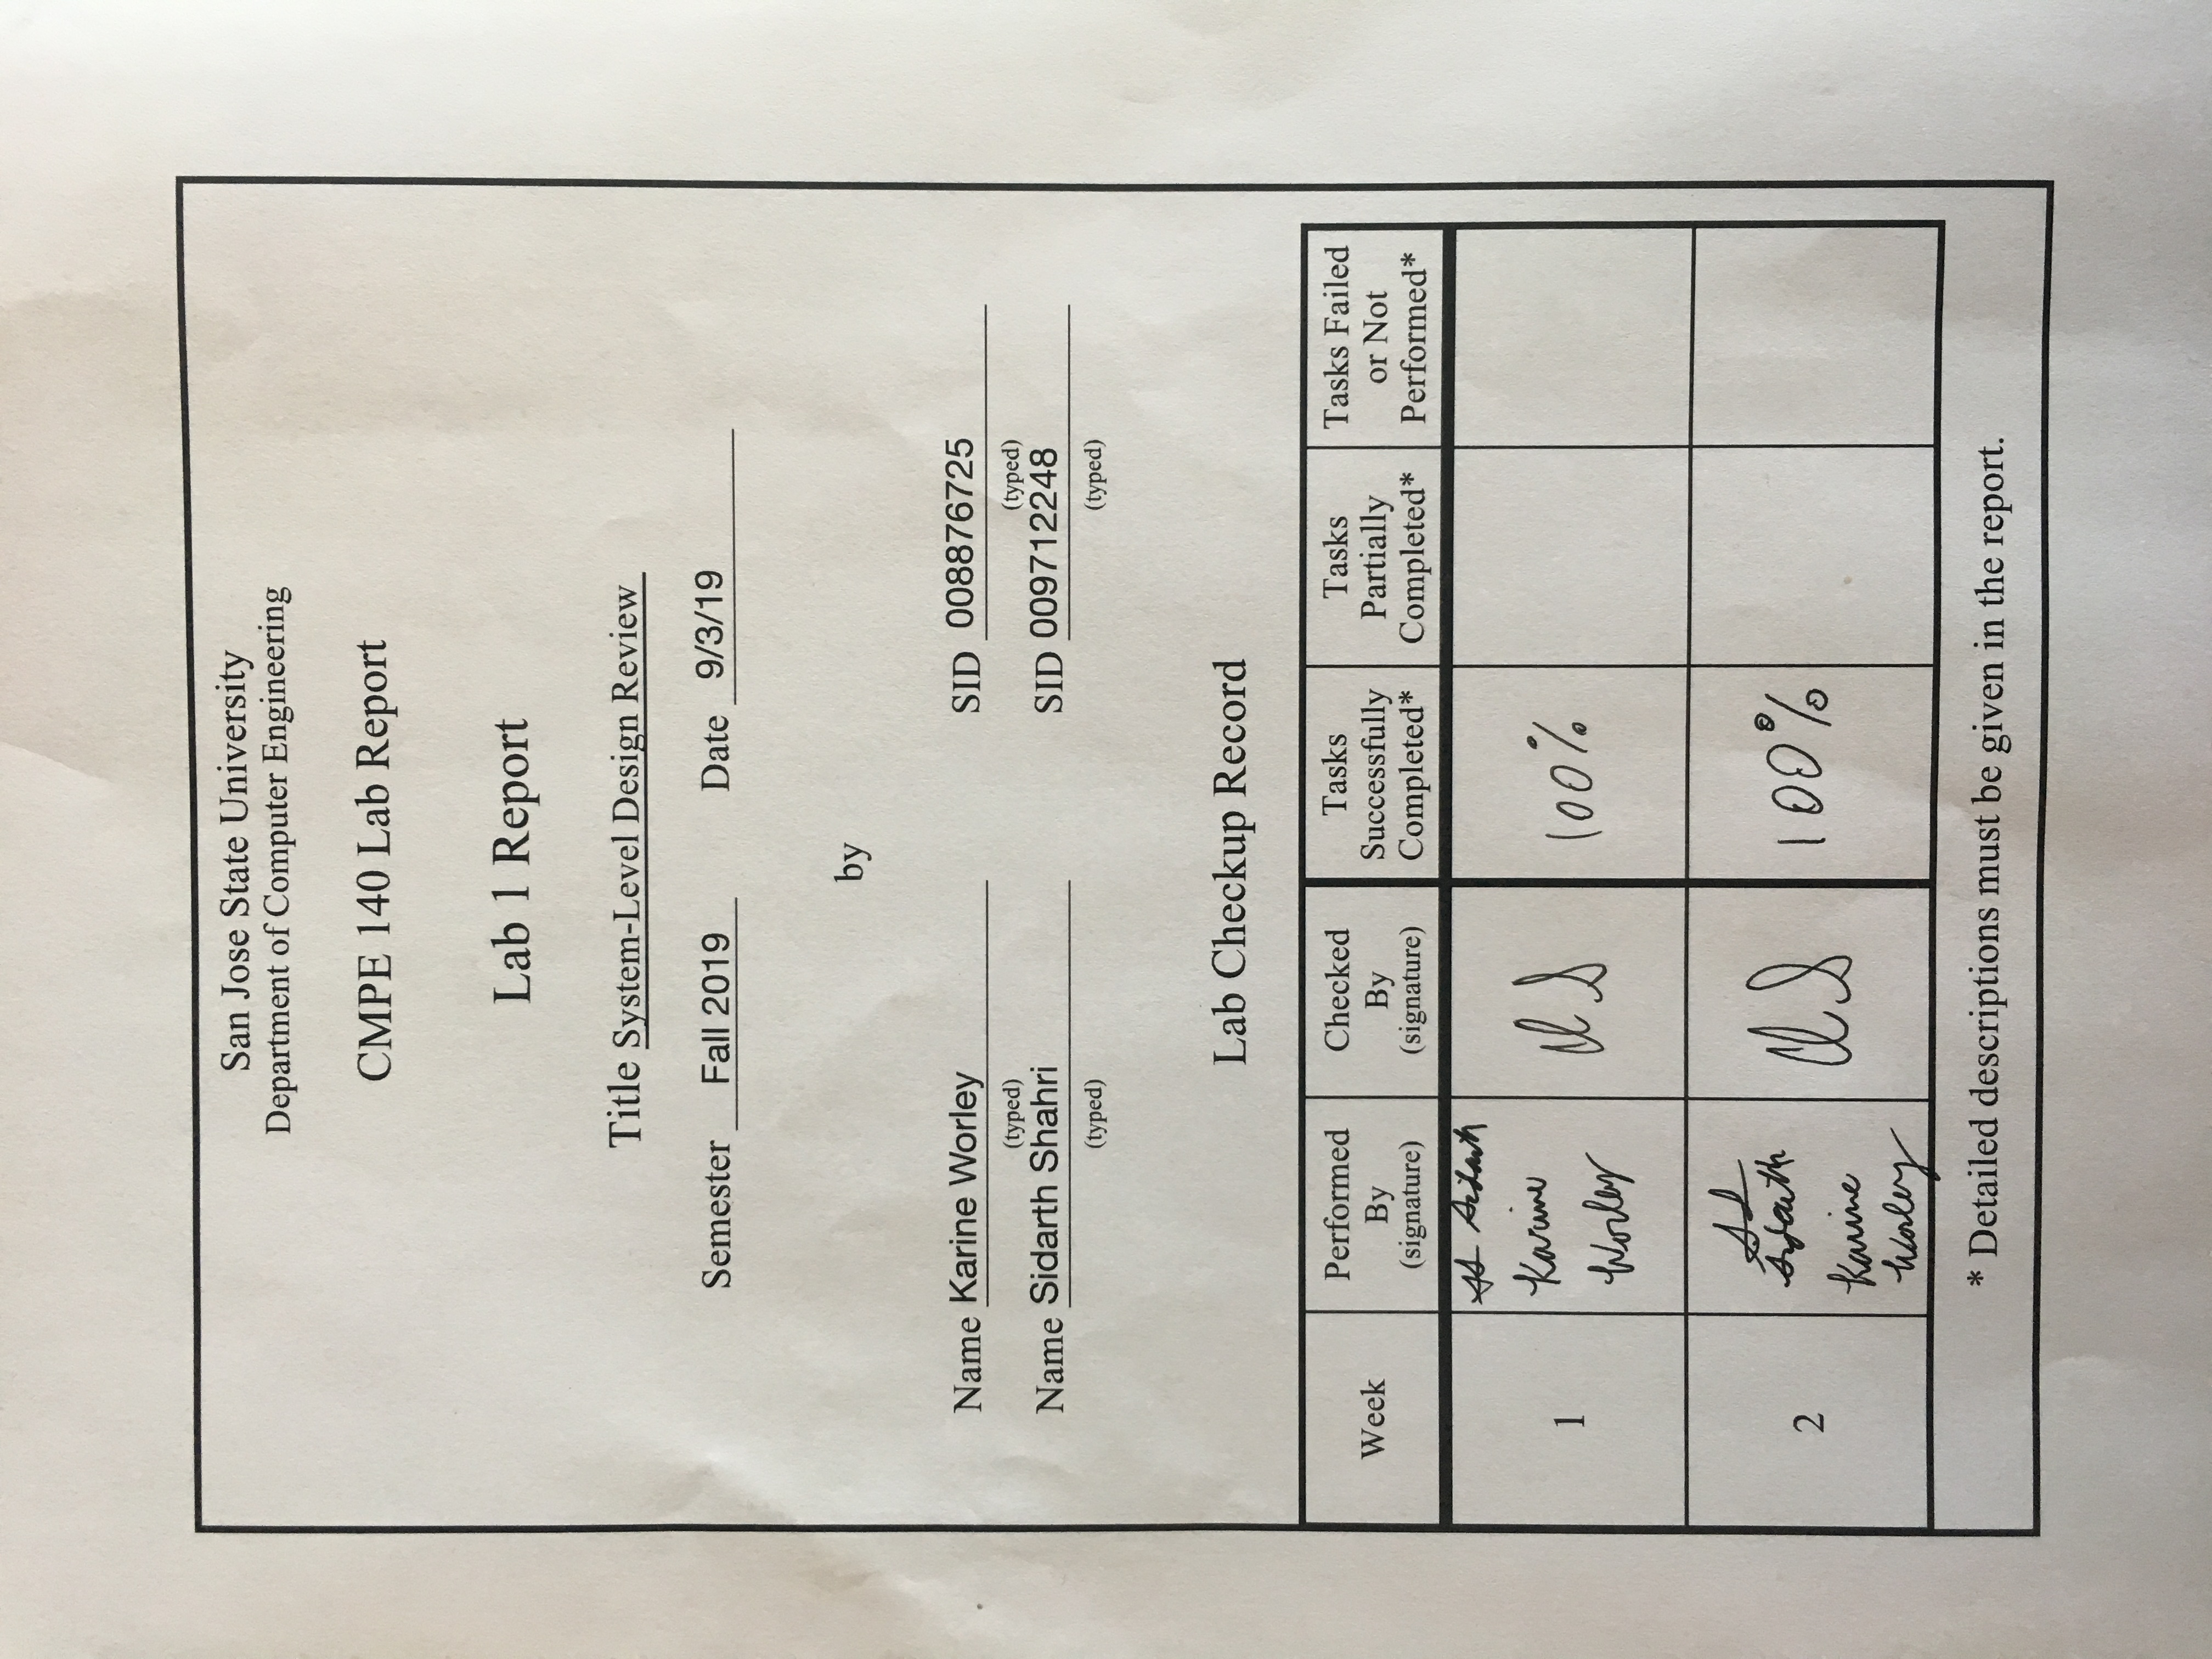 San Jose State University
Department of Computer Engineering
CMPE 140 Lab Report
Lab 1 Report
Title System-Level Design Review
Semester Fall 2019 Date 9/3/19
by
Name Karine Worley SID 008876725
(typed) (typed)
Name Sidarth Shahri SID 009712248
(typed) (typed)
Lab Checkup Record
Week
Performed
By
(signature)
Checked
By
(signature)
Tasks
Successfully
Completed*
Tasks
Partially
Completed*
Tasks Failed
or Not
Performed*
1
Sidarth
Karine
Worley
100%
2
Sidarth
Karine
Worley
100%
* Detailed descriptions must be given in the report.